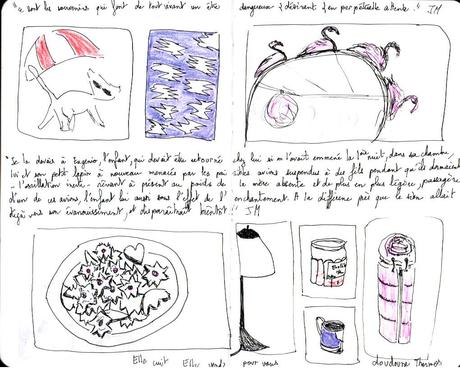 "Ce sont les souvenirs qui font de tout vivant un être dangereux & désirant & en perpétuelle attente." JM
"Je le devais à Eugenio, l'enfant, qui devait être retourné chez lui si on l'avait emmené la 1ère nuit, dans sa chambre,
lui et son petit lapin à nouveau menacés par les avions suspendus à des fils pendant qu'ils
l'oscillation à présent au poids de la mère absente et de plus en plus légère, passagère
d'un de ces avions, l'enfant lui aussi sous l'effet de l'enchantement. À la différence près que le
déjà vers son évanouissement, et disparaîtrait bientôt." JM
Elle cuit Elle vend pour vous
Doudoune Thermos